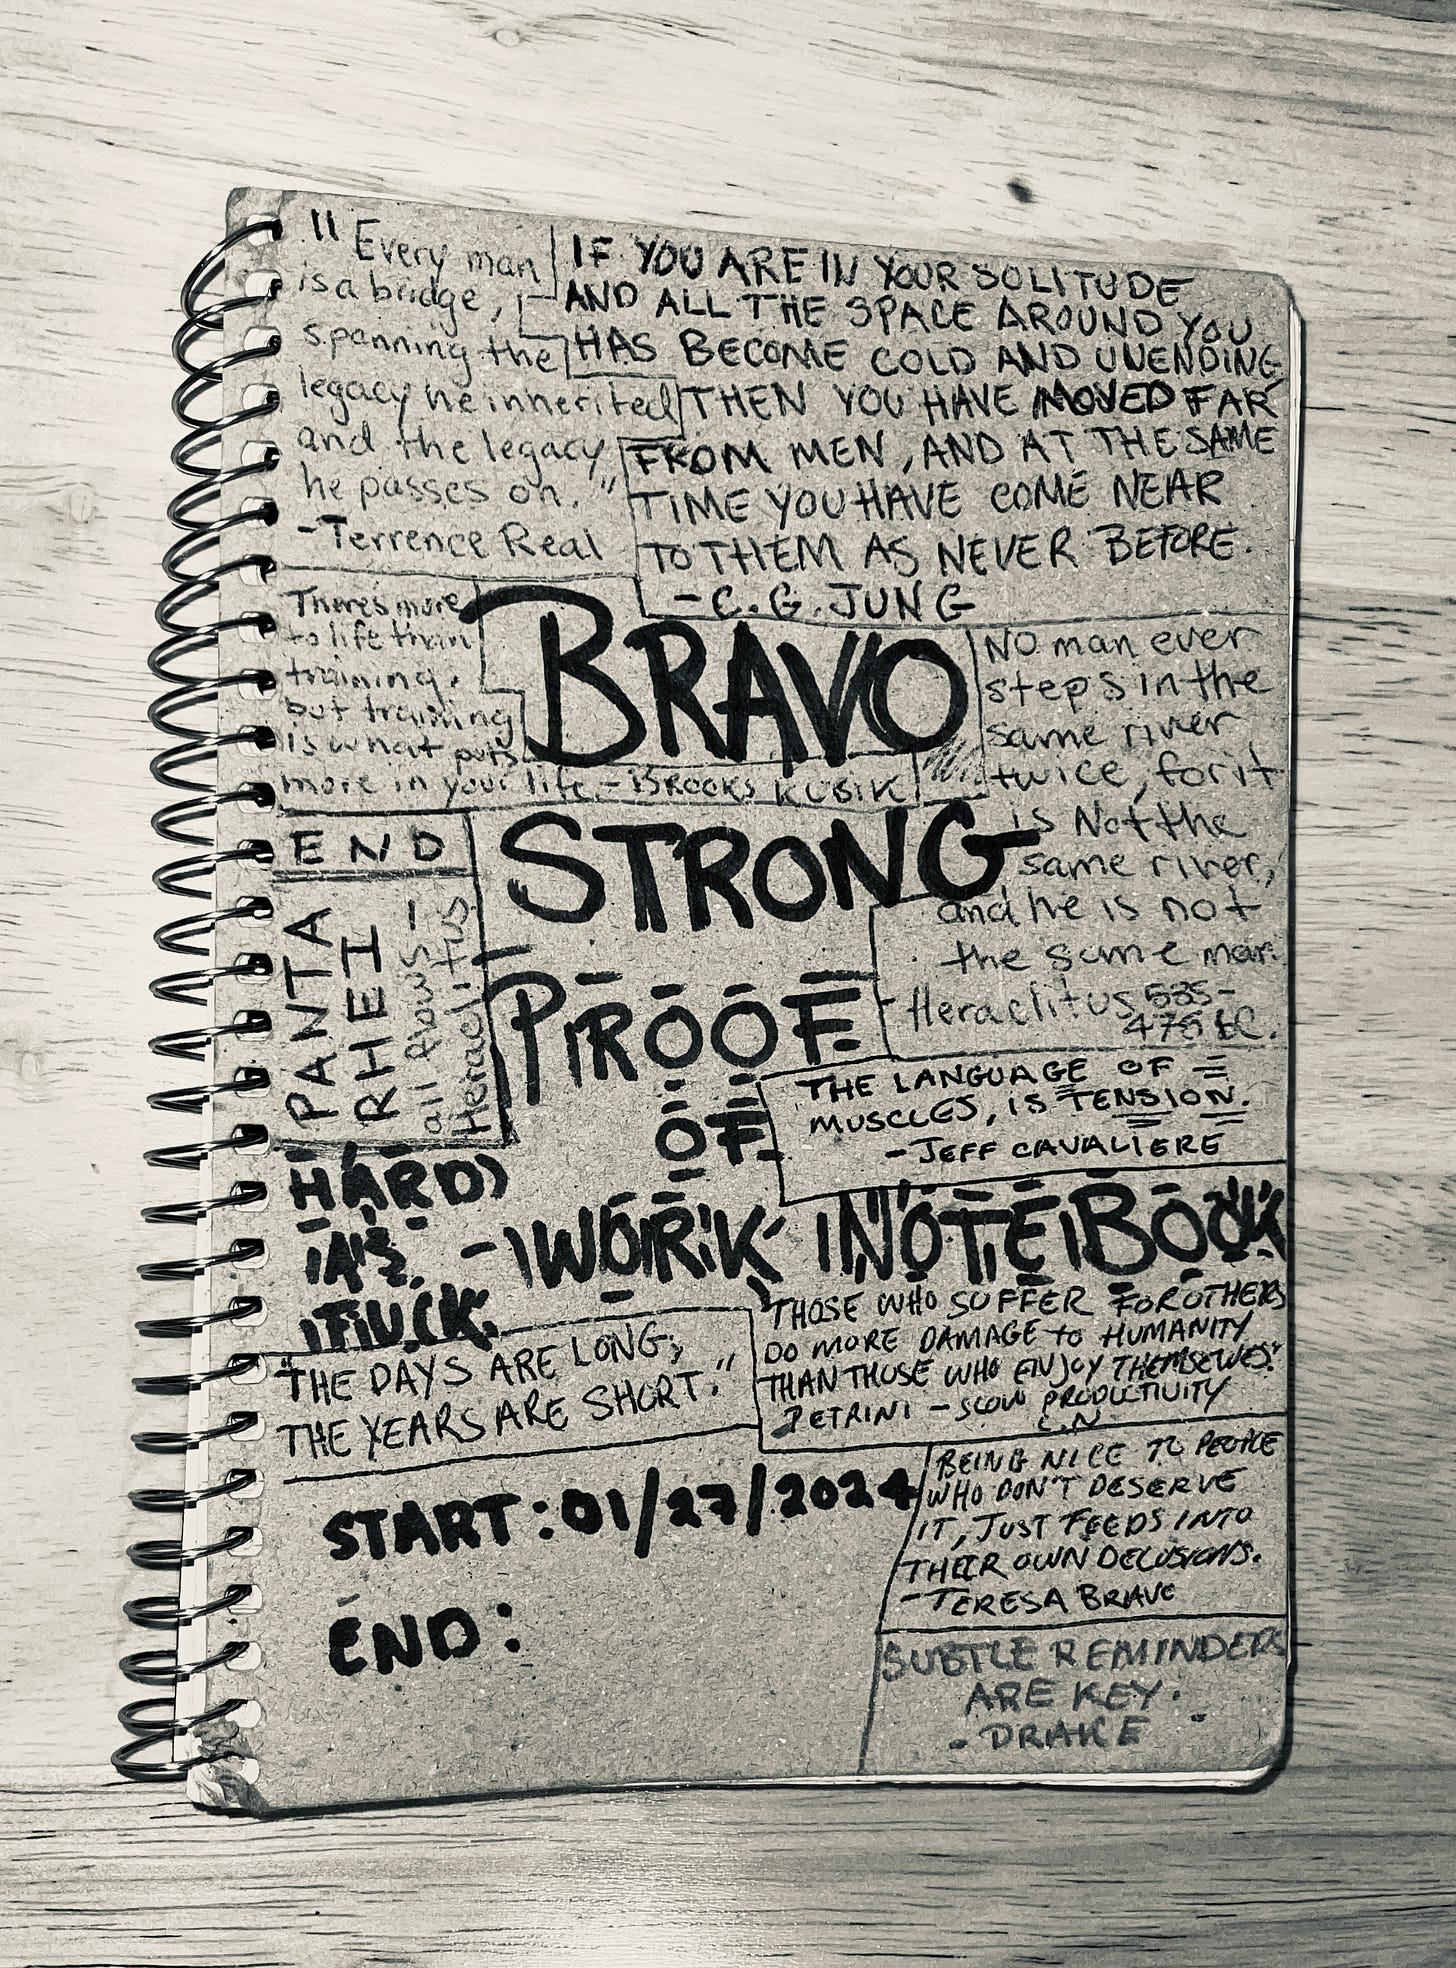 "Every man
is a bridge,
spanning the
legacy he inherited
and the legacy
he passes on."
-Terrence Real
IF YOU ARE IN YOUR SOLITUDE
AND ALL THE SPACE AROUND YOU
HAS BECOME COLD AND UNENDING,
THEN YOU HAVE MOVED FAR
FROM MEN, AND AT THE SAME
TIME YOU HAVE COME NEAR
TO THEM AS NEVER BEFORE.
-C.G. JUNG
There's more
to life than
training,
but training
is what puts
more in your life. -BROOKS KUBIK
BRAVO
STRONG
PROOF
OF
HARD
AS
FUCK
-WORK NOTEBOOK
No man ever
steps in the
same river
twice, for it
is Not the
same river,
and he is not
the same man.
-Heraclitus 535-
475 BC.
END
PANTA
RHEI
all flows-
Heraclitus
THE LANGUAGE OF
MUSCLES, IS TENSION.
-JEFF CAVALIERE
"THE DAYS ARE LONG;
THE YEARS ARE SHORT."
THOSE WHO SUFFER FOR OTHERS
DO MORE DAMAGE to HUMANITY
THAN THOSE WHO ENJOY THEMSELVES."
PETRINI - SLOW PRODUCTIVITY
C.N
START: 01/27/2024
END:
BEING NICE TO PEOPLE
WHO DON'T DESERVE
IT, JUST FEEDS INTO
THEIR OWN DELUSIONS.
-TERESA BRAVE
SUBTLE REMINDERS
ARE KEY.
- DRAKE